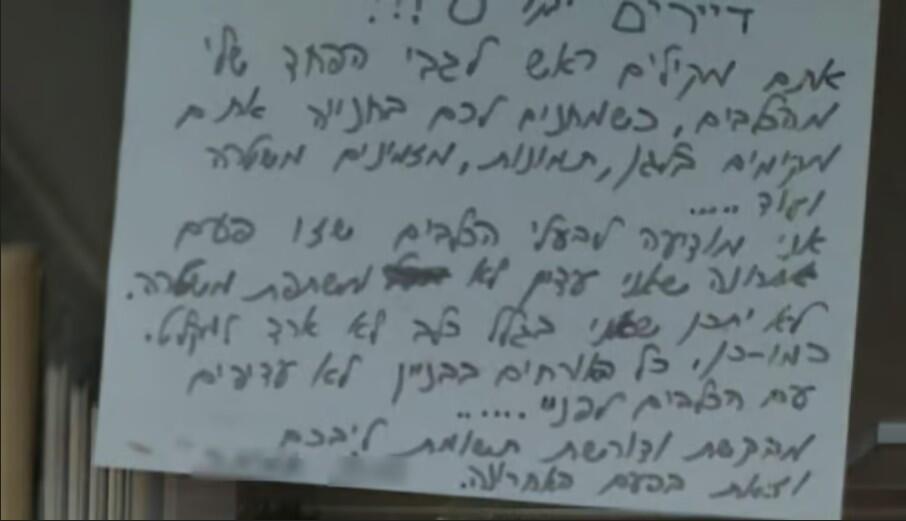 דיירים יקרים!!!
אתם מקילים ראש לגבי הפחד שלי
מהכלבים, כשחונים לכם בחנייה אתם
מקימים בלגן, תמונות, מזמינים משטרה
ועוד.....
אני מודיעה לבעלי הכלבים שזו פעם
אחרונה שאני עדיין לא משתפת משטרה.
לא יתכן שאני בגלל כלב לא ארד למקלט.
כמו-כן, כל האורחים בבניין לא עדיפים
עם הכלבים לפניי.....
מבקשת ודורשת תשומת ליבכם
וזאת בפעם האחרונה.